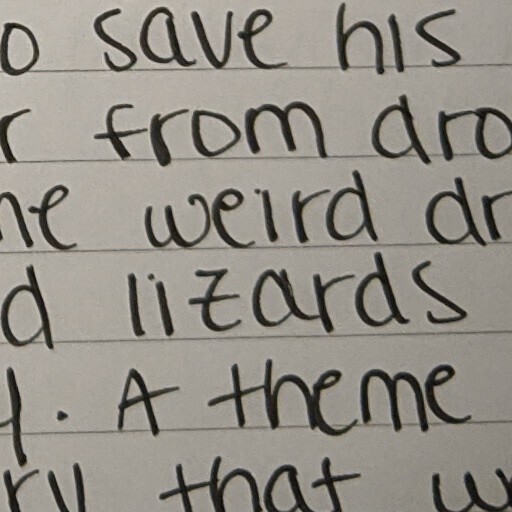 o save his
r from dro
he weird dr
d lizards
. A theme
ry that w